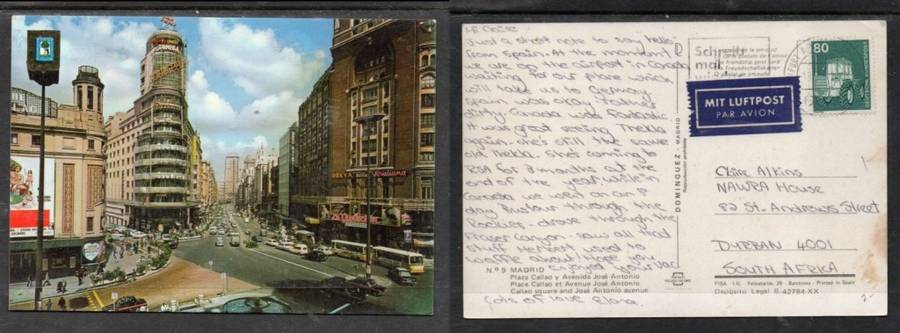 Hi Claire
Just a short note to say hello
from Spain. At the moment
we are @ the airport in Canada
waiting for our plane which
will take us to Germany
Spain was okay, rather
dirty. Canada was fantastic
It was great seeing Thekla
again - she's still the same
old Thekla. She's coming to
RSA for 3 months at the
end of the year. While in
Canada we went on an 8
day bustour through the
Rockies - drove through the
Fraser Canyon - saw all that
Mr Herbst used to
waffle about! Hope you
enjoyed your vac
Lots of love Elana.
Nº 9 MADRID
Plaza Callao y Avenida José Antonio
Place Callao et Avenue José Antonio
Callao square and José Antonio avenue
DOMINGUEZ - MADRID
Schreib
mal
80
MIT LUFTPOST
PAR AVION
Claire Atkins
NAWRA HOUSE
82 St. Andrews Street
DURBAN 4001
SOUTH AFRICA
FISA I.G. Barcelona - Printed in Spain
Depósito Legal B. 42784-XX
2-